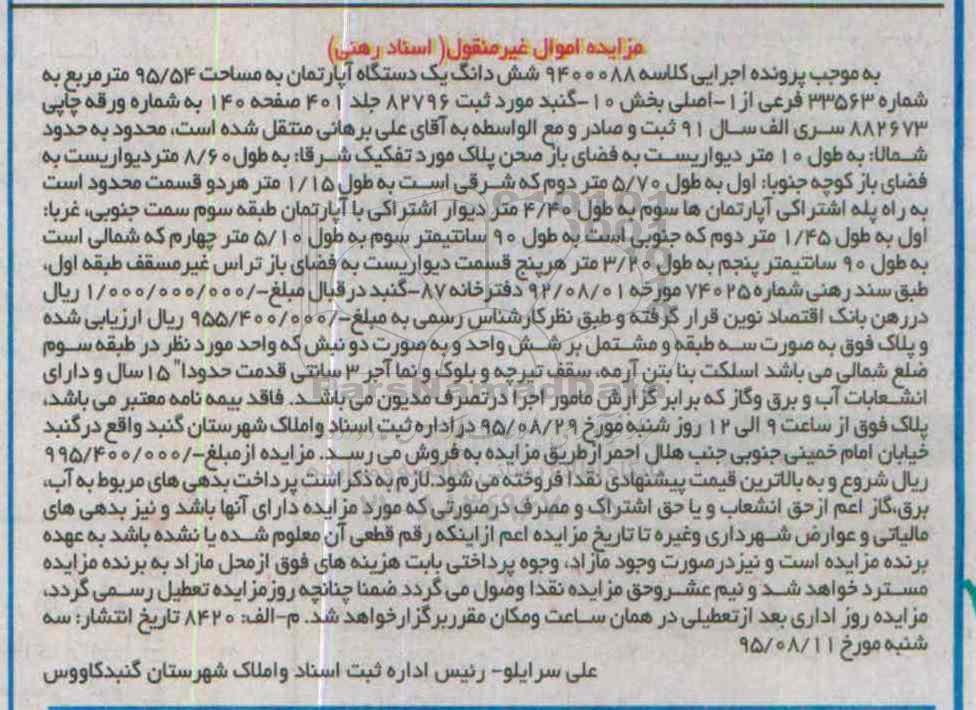 مزایده اموال غیرمنقول( اسناد رهنی)
به موجب پرونده اجرایی کلاسه ۹۴۰۰۰۸۸ شش دانگ یک دستگاه آپارتمان به مساحت ۹۵/۵۴ مترمربع به
شماره ۳۳۵۶۳ فرعی از۱-اصلی بخش ۱۰-گنبد مورد ثبت ۸۲۷۹۶ جلد ۴۰۱ صفحه ۱۴۰ به شماره ورقه چاپی
۸۸۲۶۷۳ سری الف سال ۹۱ ثبت و صادر و مع الواسطه به آقای علی برهانی منتقل شده است، محدود به حدود
شمالا: به طول ۱۰ متر دیواریست به فضای باز صحن پلاک مورد تفکیک شرقا: به طول۸/۶۰ متردیواریست به
فضای باز کوچه جنوبا: اول به طول ۵/۷۰ متر دوم که شرقی است به طول ۱/۱۵ متر هردو قسمت محدود است
به راه پله اشتراکی آپارتمان ها سوم به طول ۴/۴۰ متر دیوار اشتراکی با آپارتمان طبقه سوم سمت جنوبی، غربا:
اول به طول ۱/۴۵ متر دوم که جنوبی است به طول ۹۰ سانتیمتر سوم به طول ۵/۱۰ متر چهارم که شمالی است
به طول ۹۰ سانتیمتر پنجم به طول ۳/۲۰ متر هرپنج قسمت دیواریست به فضای باز تراس غیرمسقف طبقه اول،
طبق سند رهنی شماره ۷۴۰۲۵ مورخه ۹۲/۰۸/۰۱ دفترخانه ۸۷-گنبد درقبال مبلغ-/۱/۰۰۰/۰۰۰/۰۰۰ ریال
دررهن بانک اقتصاد نوین قرار گرفته و طبق نظرکارشناس رسمی به مبلغ-/۹۵۵/۴۰۰/۰۰۰ ریال ارزیابی شده
و پلاک فوق به صورت سه طبقه و مشتمل بر شش واحد و به صورت دو نبش که واحد مورد نظر در طبقه سوم
ضلع شمالی می باشد اسلکت بنا بتن آرمه، سقف تیرچه و بلوک و نما آجر ۳ سانتی قدمت حدودا" ۱۵سال و دارای
انشعابات آب و برق وگاز که برابر گزارش مامور اجرا درتصرف مدیون می باشد. فاقد بیمه نامه معتبر می باشد،
پلاک فوق از ساعت ۹ الی ۱۲ روز شنبه مورخ ۹۵/۰۸/۲۹ در اداره ثبت اسناد و املاک شهرستان گنبد واقع درگنبد
خیابان امام خمینی جنوبی جنب هلال احمر ازطریق مزایده به فروش می رسد. مزایده ازمبلغ-/۹۹۵/۴۰۰/۰۰۰
ریال شروع و به بالاترین قیمت پیشنهادی نقدا فروخته می شود.لازم به ذکراست پرداخت بدهی های مربوط به آب،
برق،گاز اعم ازحق انشعاب و یا حق اشتراک و مصرف درصورتی که مورد مزایده دارای آنها باشد و نیز بدهی های
مالیاتی و عوارض شهرداری وغیره تا تاریخ مزایده اعم از اینکه رقم قطعی آن معلوم شده یا نشده باشد به عهده
برنده مزایده است و نیزدرصورت وجود مازاد، وجوه پرداختی بابت هزینه های فوق ازمحل مازاد به برنده مزایده
مسترد خواهد شد و نیم عشروحق مزایده نقدا وصول می گردد ضمنا چنانچه روزمزایده تعطیل رسمی گردد،
مزایده روز اداری بعد ازتعطیلی در همان ساعت ومکان مقرربرگزارخواهد شد. م-الف: ۸۴۲۰ تاریخ انتشار: سه
شنبه مورخ ۹۵/۰۸/۱۱
علی سرایلو- رئیس اداره ثبت اسناد واملاک شهرستان گنبدکاووس
ParsNamadData